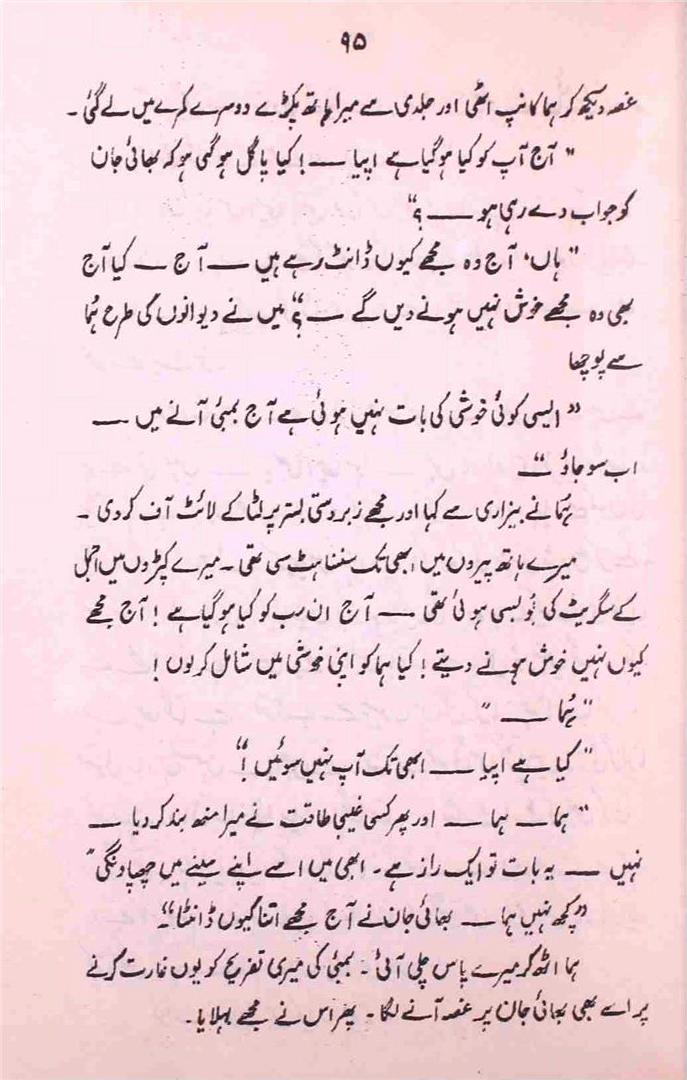 ۹۵
غصہ دیکھ کر ہما کانپ اٹھی اور جلدی سے میرا ہاتھ پکڑے دوسرے کمرے میں لے گئی۔
"آج آپ کو کیا ہو گیا ہے اپیا ــــ! کیا پاگل ہو گئی ہو کہ بھائی جان
کو جواب دے رہی ہو ــــ؟"
"ہاں، آج وہ مجھے کیوں ڈانٹ رہے ہیں ــــ آج ــــ کیا آج
بھی وہ مجھے خوش نہیں ہونے دیں گے ــــ؟" میں نے دیوانوں کی طرح ہُما
سے پوچھا
"ایسی کوئی خوشی کی بات نہیں ہوئی ہے آج بمبئی آنے میں ــــ
اب سو جاؤ ــــ"
ہُما نے بیزاری سے کہا اور مجھے زبردستی بستر پر لٹا کے لائٹ آف کر دی۔
میرے ہاتھ پیروں میں ابھی تک سنسناہٹ سی تھی۔ میرے کپڑوں میں اجمل
کے سگریٹ کی بُو بسی ہوئی تھی ــــ آج ان سب کو کیا ہو گیا ہے! آج مجھے
کیوں نہیں خوش ہونے دیتے! کیا ہما کو اپنی خوشی میں شامل کر لوں!
"ہُما ــــ"
"کیا ہے اپیا ــــ ابھی تک آپ نہیں سوئیں!"
"ہما ــــ ہما ــــ اور پھر کسی غیبی طاقت نے میرا منھ بند کر دیا ــــ
نہیں ــــ یہ بات تو ایک راز ہے۔ ابھی میں اسے اپنے سینے میں چھپاونگی"
"کچھ نہیں ہما ــــ بھائی جان نے آج مجھے اتنا کیوں ڈانٹا"۔
ہما اٹھ کر میرے پاس چلی آئی۔ بمبئی کی میری تفریح کو یوں غارت کرنے
پر اسے بھی بھائی جان پر غصہ آنے لگا۔ پھر اس نے مجھے بہلایا۔